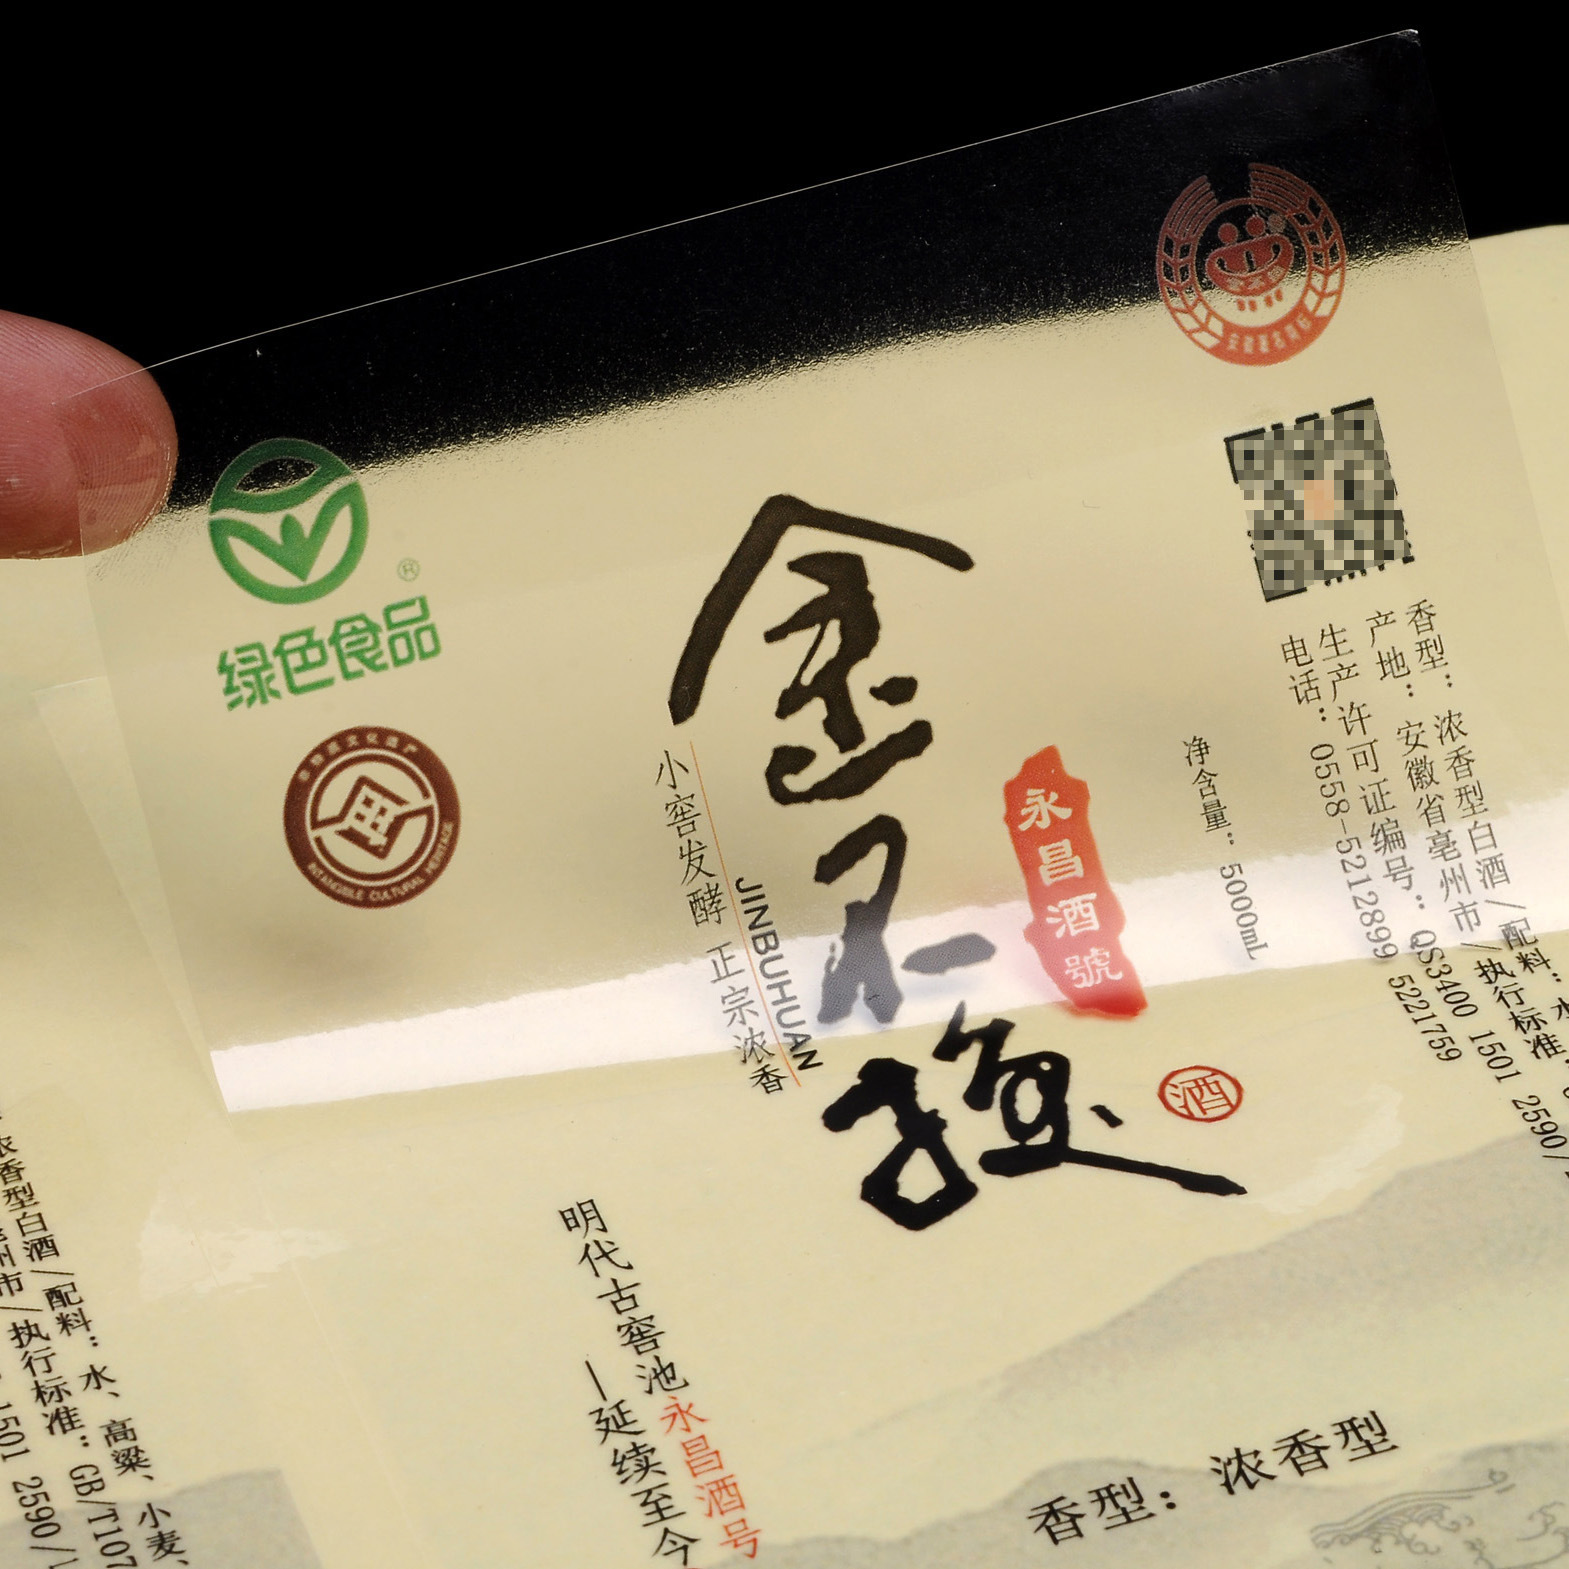 绿色食品
®
INTANGIBLE CULTURAL HERITAGE
金不换
小窖发酵 正宗浓香
JINBUHUAN
永昌酒號
酒
净含量：5000mL
香型：浓香型白酒/配料：水
产地：安徽省亳州市/执行标准：
生产许可证编号：QS3400 1501 2590/
电话：0558-5212899 5221759
明代古窖池永昌酒号
—延续至今
香型：浓香型
浓香型白酒/配料：水、高粱、小麦、
州市/执行标准：GB/T107
1501 2590/